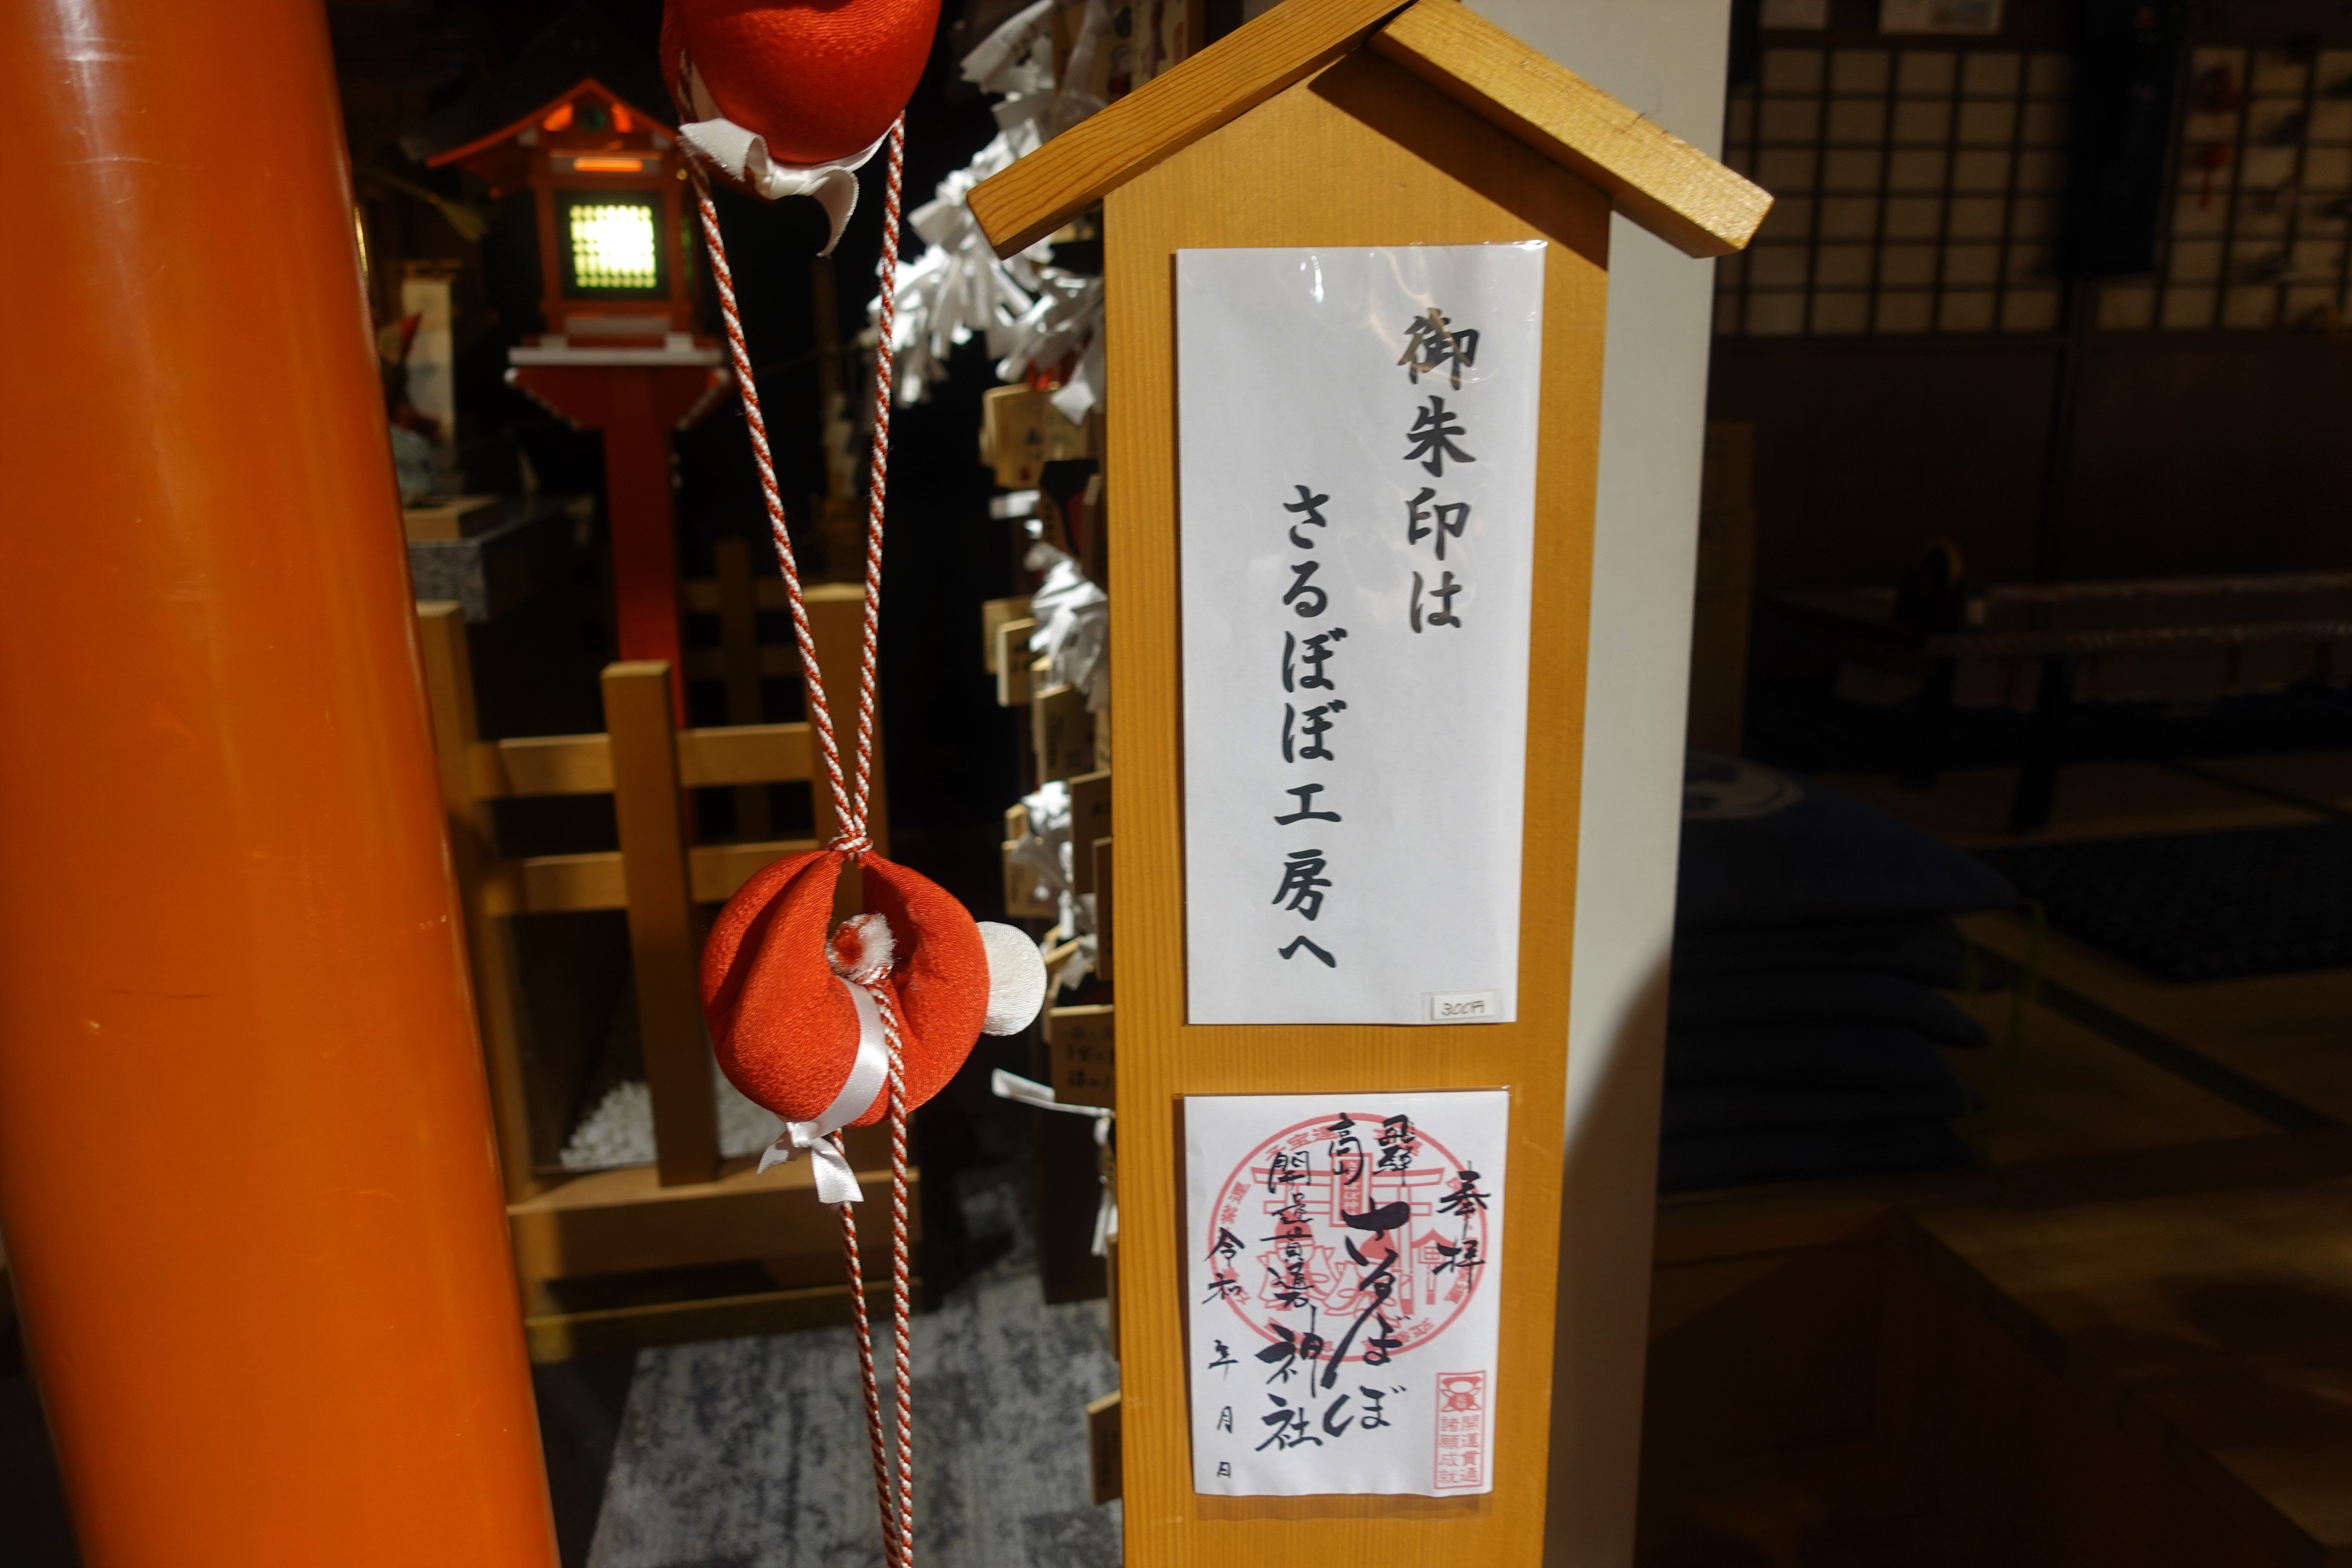 御朱印は
さるぼぼ工房へ
300円
奉拝
飛騨
高山
さるぼぼ
開運貫通
神社
令和 年 月 日
開運貫通
諸願成就